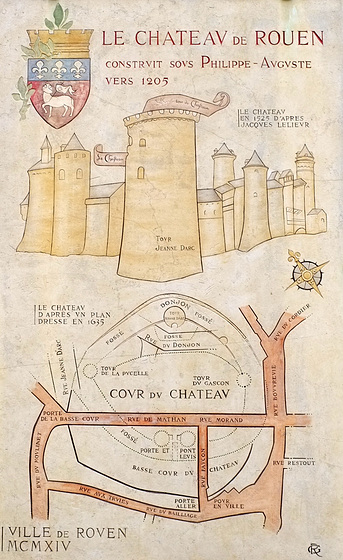 LE CHATEAV DE ROUEN
CONSTRVIT SOVS PHILIPPE-AVGVSTE
VERS 1205
LE CHATEAV
EN 1525 D'APRES
JACQVES LELIEVR
TOVR
JEANNE DARC
LE CHATEAV
D'APRES VN PLAN
DRESSE EN 1635
DONJON
FOSSÉ
FOSSÉ
FOSSÉ
RVE DV DONJON
RVE DV CORDIER
RVE JEANNE DARC
TOVR
DE LA PVCELLE
TOVR
DV GASCON
COVR DV CHATEAV
RVE BOVVREVIL
PORTE
DE LA BASSE COVR
RVE DE MATHAN
RVE MORAND
FOSSÉ
PORTE ET
PONT
LEVIS
RVE FAVCON
RVE RESTOUT
BASSE COVR DV CHATEAV
RVE AVX IRVIES
PORTE
ALLER
POVR
EN VILLE
RVE DV BAILLIAGE
VILLE DE ROVEN
MCMXIV